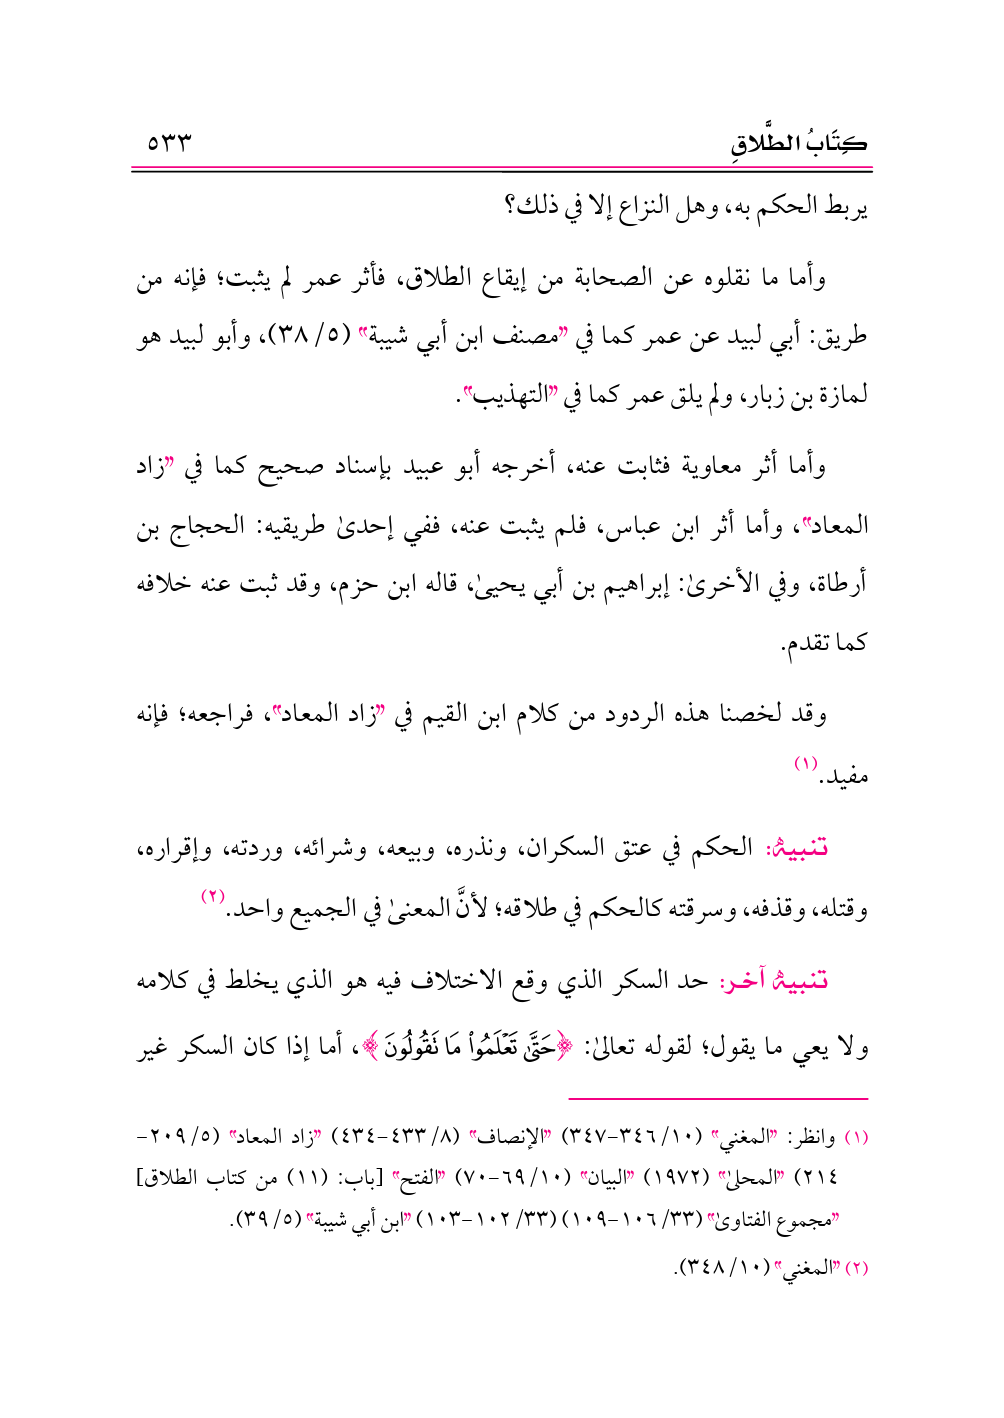 كِتَابُ الطَّلاقِ ٥٣٣
يربط الحكم به، وهل النزاع إلا في ذلك؟
وأما ما نقلوه عن الصحابة من إيقاع الطلاق، فأثر عمر لم يثبت؛ فإنه من
طريق: أبي لبيد عن عمر كما في "مصنف ابن أبي شيبة" (٥/ ٣٨)، وأبو لبيد هو
لمازة بن زبار، ولم يلق عمر كما في "التهذيب".
وأما أثر معاوية فثابت عنه، أخرجه أبو عبيد بإسناد صحيح كما في "زاد
المعاد"، وأما أثر ابن عباس، فلم يثبت عنه، ففي إحدىٰ طريقيه: الحجاج بن
أرطاة، وفي الأخرىٰ: إبراهيم بن أبي يحيىٰ، قاله ابن حزم، وقد ثبت عنه خلافه
كما تقدم.
وقد لخصنا هذه الردود من كلام ابن القيم في "زاد المعاد"، فراجعه؛ فإنه
مفيد.(١)
تنبيهٌ: الحكم في عتق السكران، ونذره، وبيعه، وشرائه، وردته، وإقراره،
وقتله، وقذفه، وسرقته كالحكم في طلاقه؛ لأنَّ المعنىٰ في الجميع واحد.(٢)
تنبيهٌ آخر: حد السكر الذي وقع الاختلاف فيه هو الذي يخلط في كلامه
ولا يعي ما يقول؛ لقوله تعالىٰ: ﴿حَتَّىٰ تَعْلَمُواْ مَا تَقُولُونَ﴾، أما إذا كان السكر غير
(١) وانظر: "المغني" (١٠/ ٣٤٦-٣٤٧) "الإنصاف" (٨/ ٤٣٣-٤٣٤) "زاد المعاد" (٥/ ٢٠٩-
٢١٤) "المحلىٰ" (١٩٧٢) "البيان" (١٠/ ٦٩-٧٠) "الفتح" [باب: (١١) من كتاب الطلاق]
"مجموع الفتاوىٰ" (٣٣/ ١٠٦-١٠٩) (٣٣/ ١٠٢-١٠٣) "ابن أبي شيبة" (٥/ ٣٩).
(٢) "المغني" (١٠/ ٣٤٨).